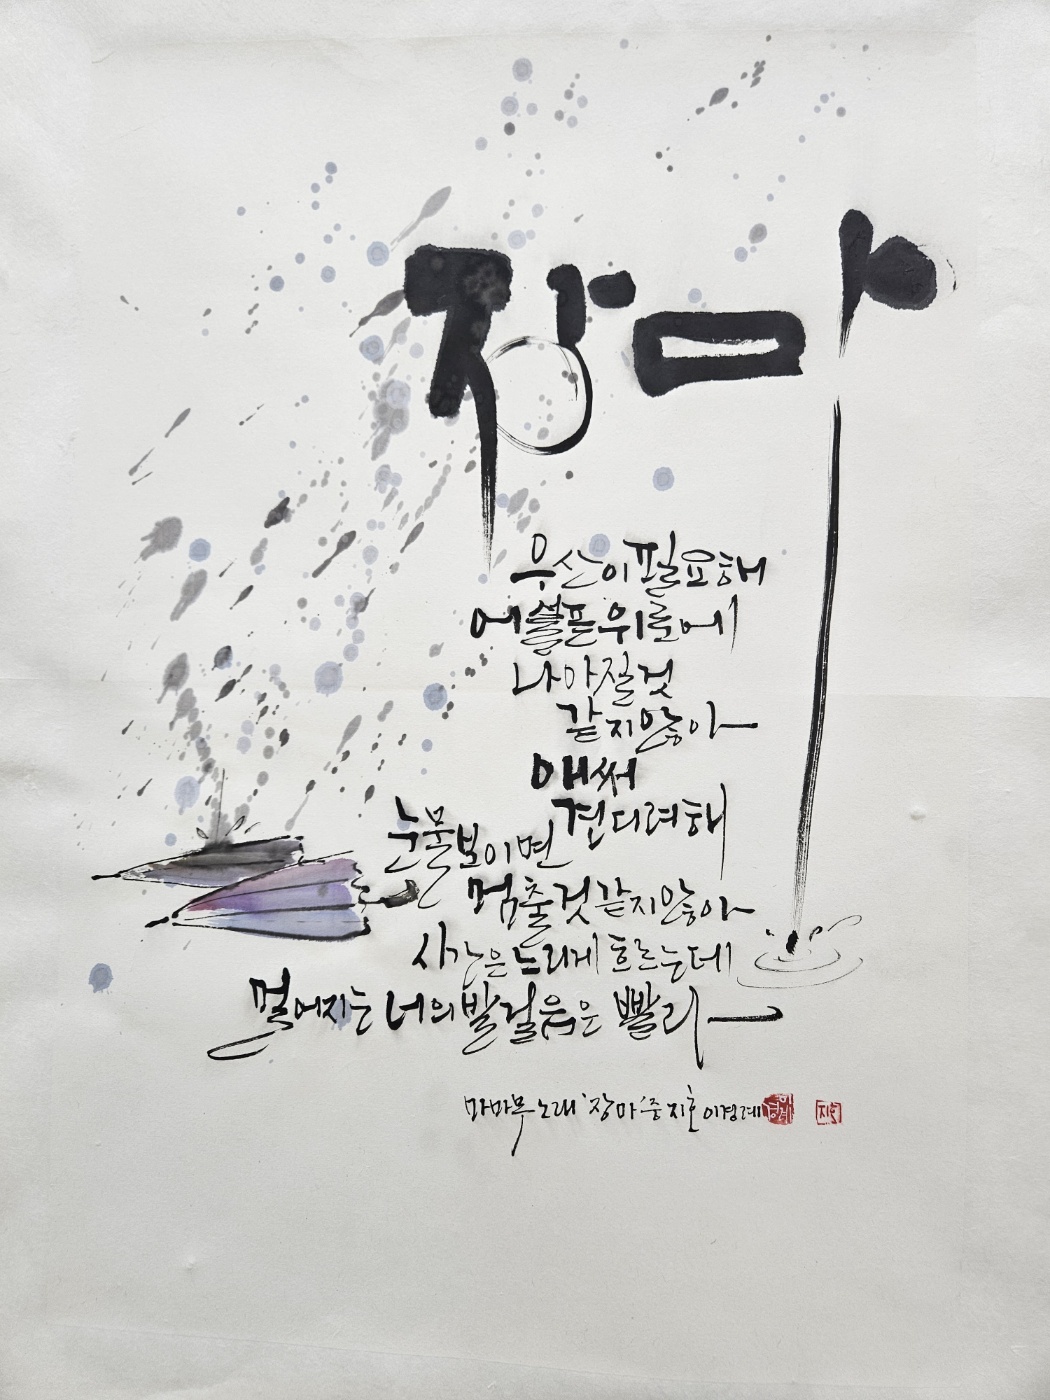 장마
우산이 필요해
어설픈 위로에
나아질 것
같지 않아
애써
견디려 해
눈물 보이면
멈출 것 같지 않아
시간은 느리게 흐르는데
멀어지는 너의 발걸음은 빨라
마마무 노래 '장마' 중 지호 이경례